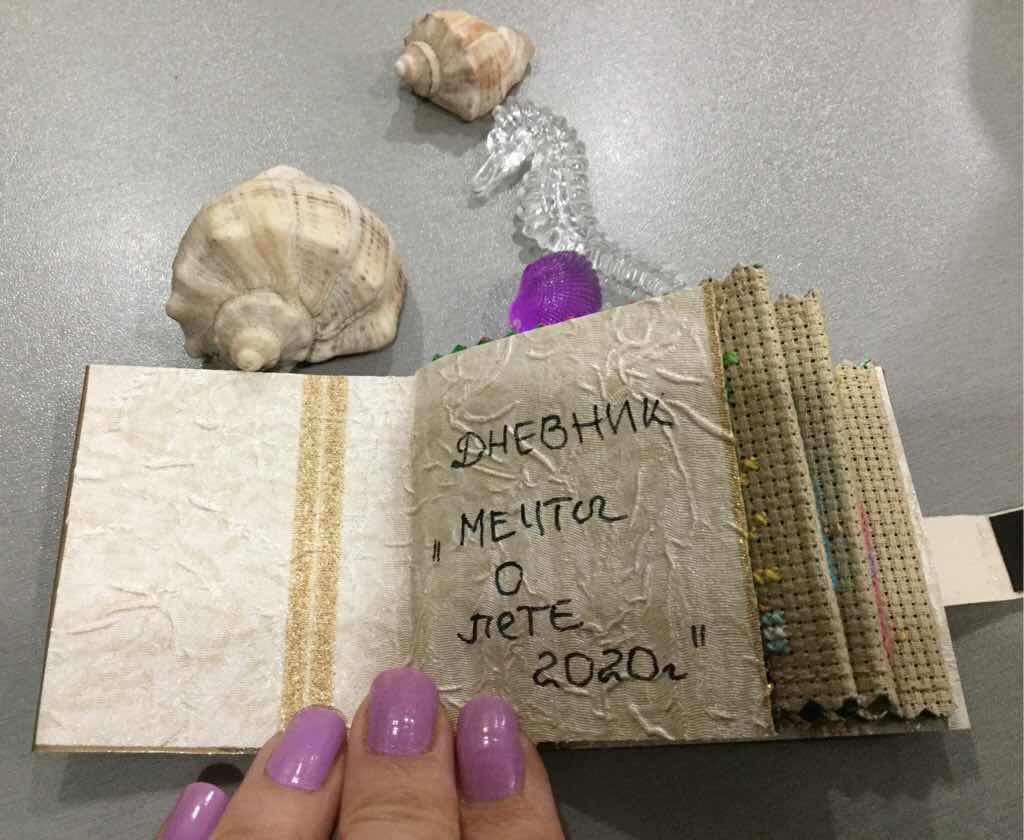 ДНЕВНИК
"МЕЧТЫ
О
ЛЕТЕ
2020г"